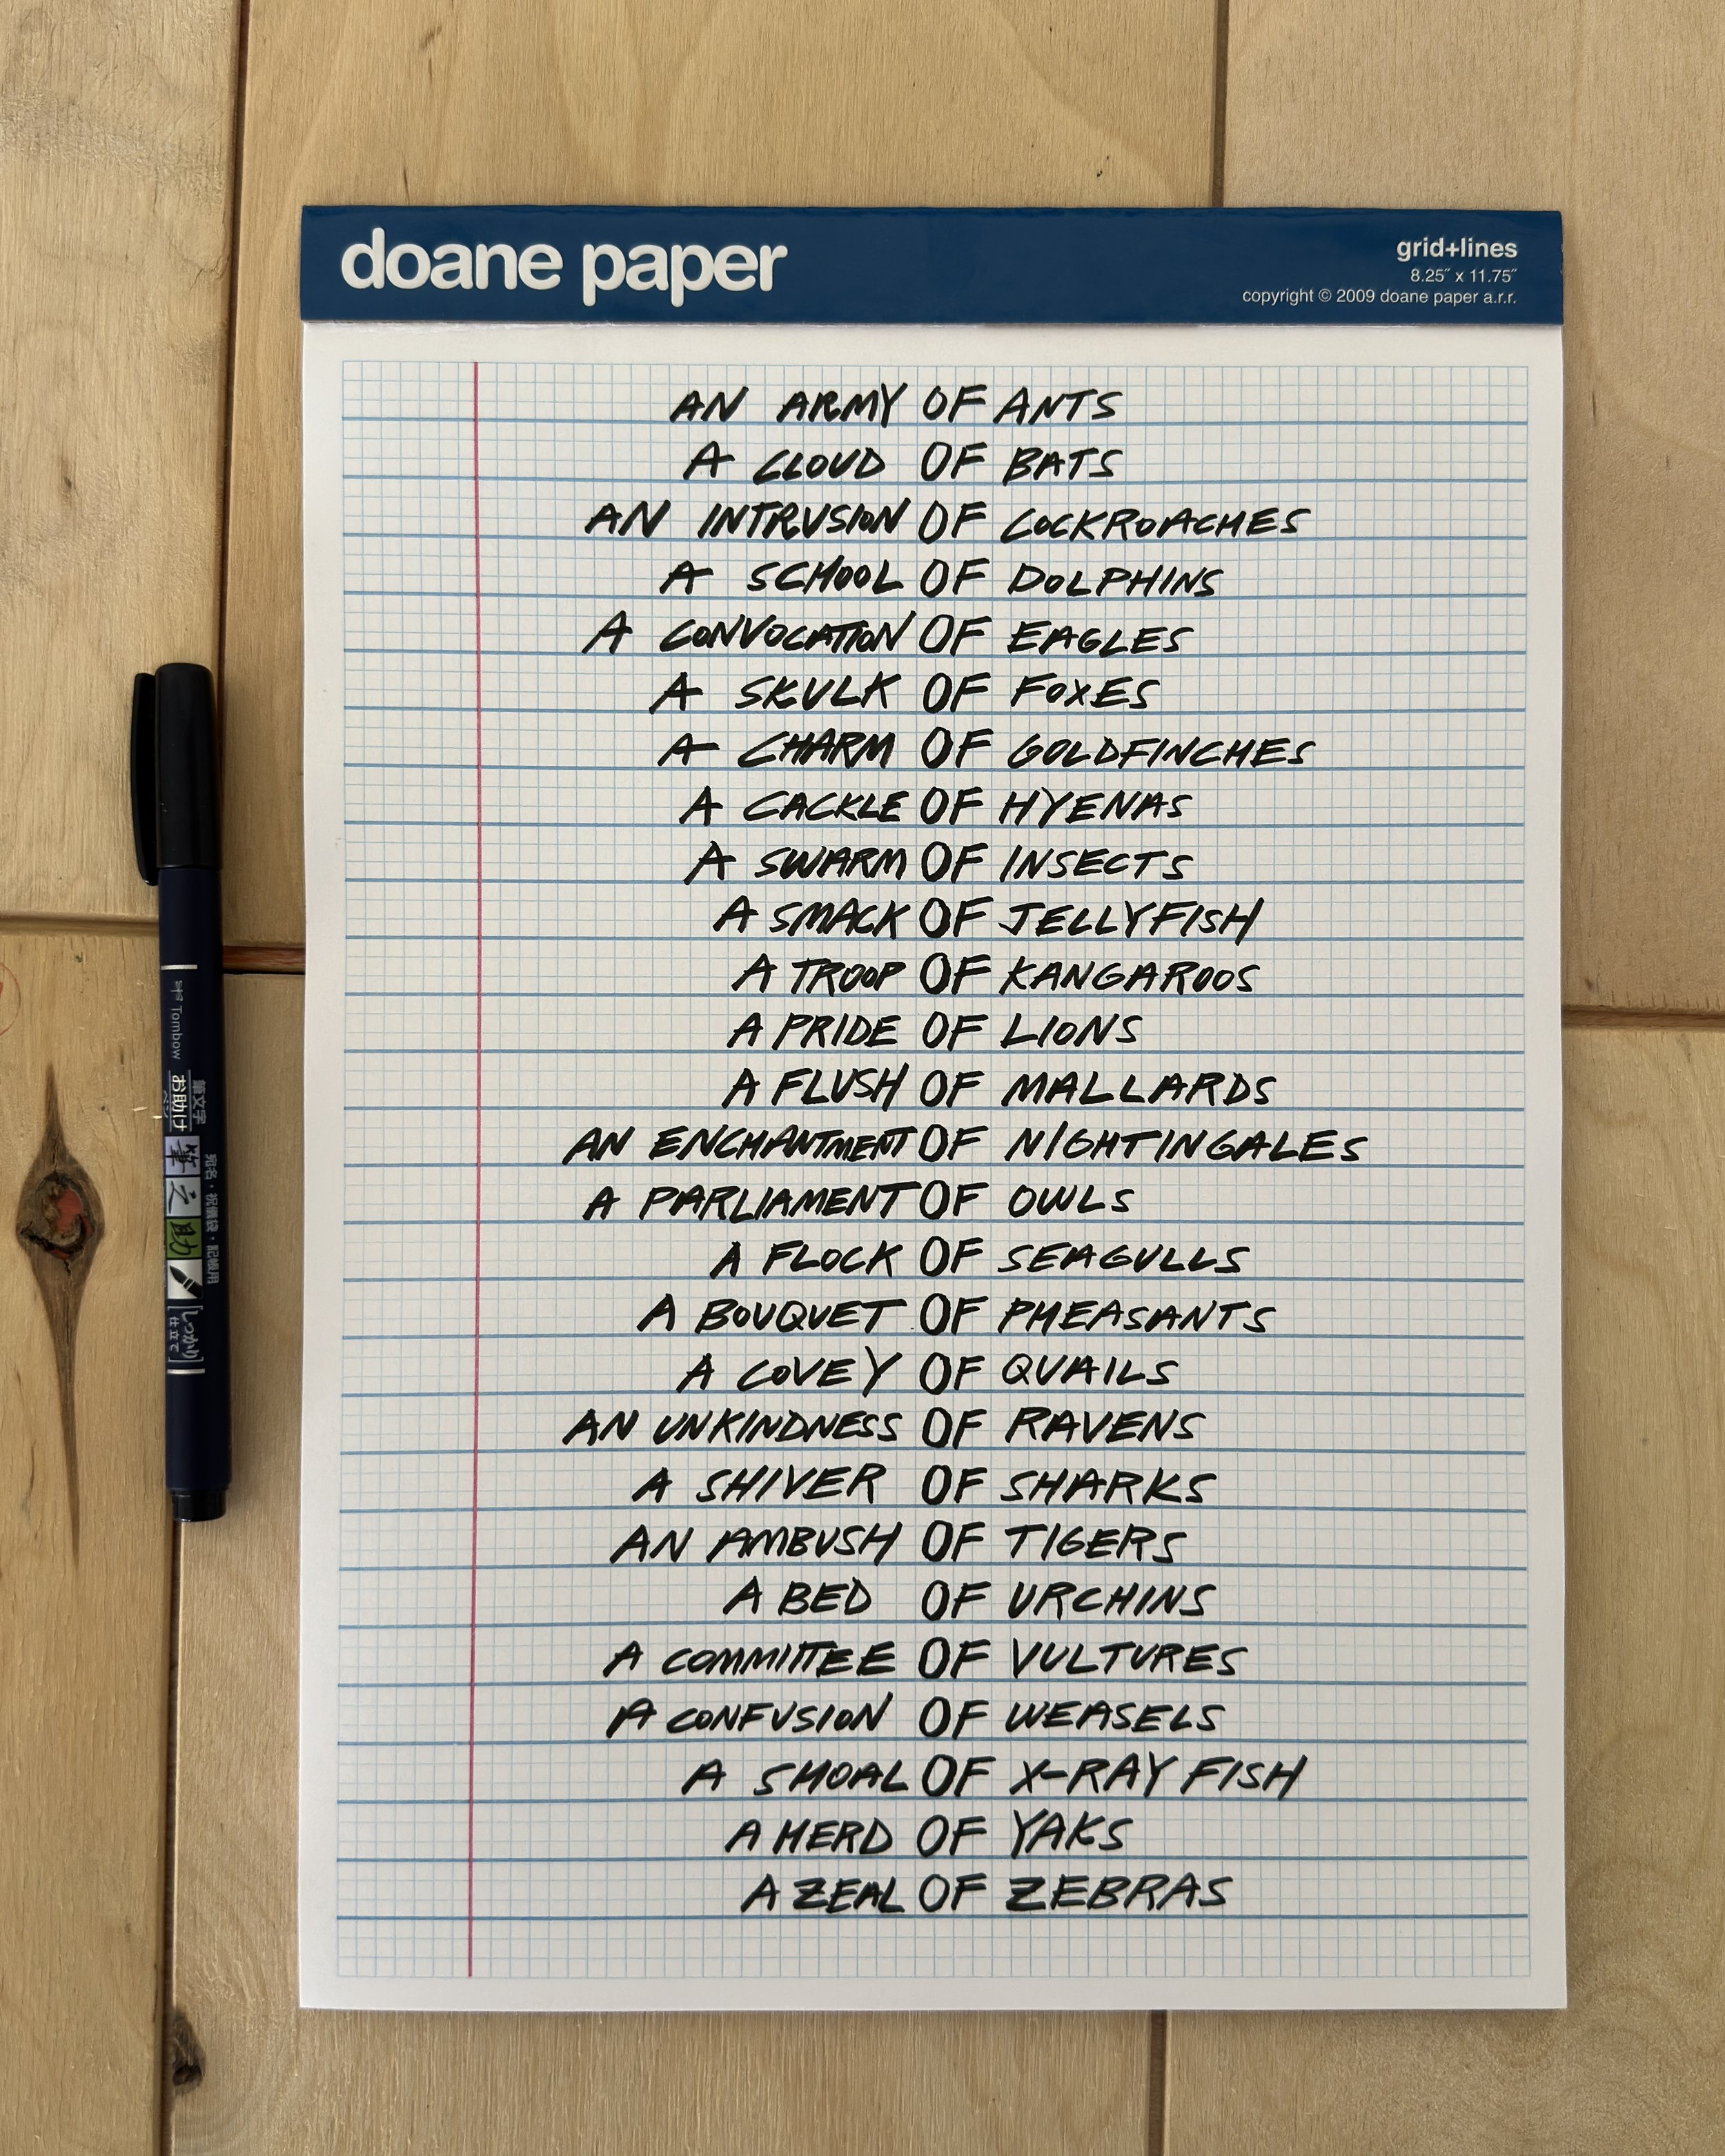 doane paper
grid+lines
8.25″ x 11.75″
copyright © 2009 doane paper a.r.r.
AN ARMY OF ANTS
A CLOUD OF BATS
AN INTRUSION OF COCKROACHES
A SCHOOL OF DOLPHINS
A CONVOCATION OF EAGLES
A SKULK OF FOXES
A CHARM OF GOLDFINCHES
A CACKLE OF HYENAS
A SWARM OF INSECTS
A SMACK OF JELLYFISH
A TROOP OF KANGAROOS
A PRIDE OF LIONS
A FLUSH OF MALLARDS
AN ENCHANTMENT OF NIGHTINGALES
A PARLIAMENT OF OWLS
A FLOCK OF SEAGULLS
A BOUQUET OF PHEASANTS
A COVEY OF QUAILS
AN UNKINDNESS OF RAVENS
A SHIVER OF SHARKS
AN AMBUSH OF TIGERS
A BED OF URCHINS
A COMMITTEE OF VULTURES
A CONFUSION OF WEASELS
A SHOAL OF X-RAY FISH
A HERD OF YAKS
A ZEAL OF ZEBRAS
Tombow
筆文字
お助け
筆之助
[しっかり仕立て]